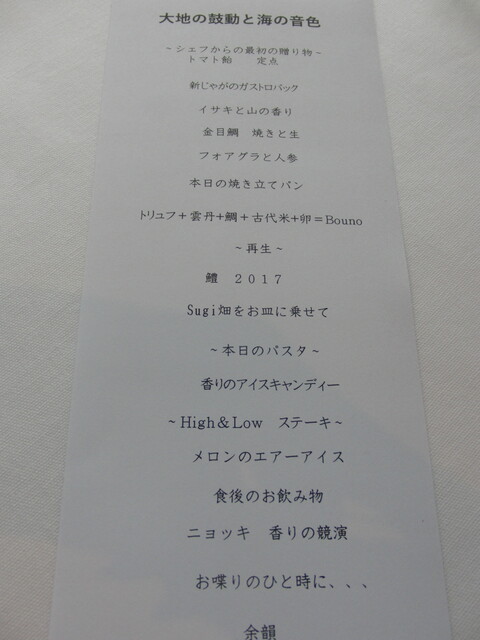 大地の鼓動と海の音色
~シェフからの最初の贈り物~
トマト飴　定点
新じゃがのガストロバック
イサキと山の香り
金目鯛　焼きと生
フォアグラと人参
本日の焼き立てパン
トリュフ+雲丹+鯛+古代米+卵=Bouno
~再生~
鱧　2017
Sugi畑をお皿に乗せて
~本日のパスタ~
香りのアイスキャンディー
~High&Low　ステーキ~
メロンのエアーアイス
食後のお飲み物
ニョッキ　香りの競演
お喋りのひと時に、、、
余韻